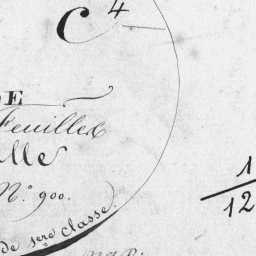 C 4
DE
Feuilles
lle
N.º 900.
de 1ere classe.
1
12